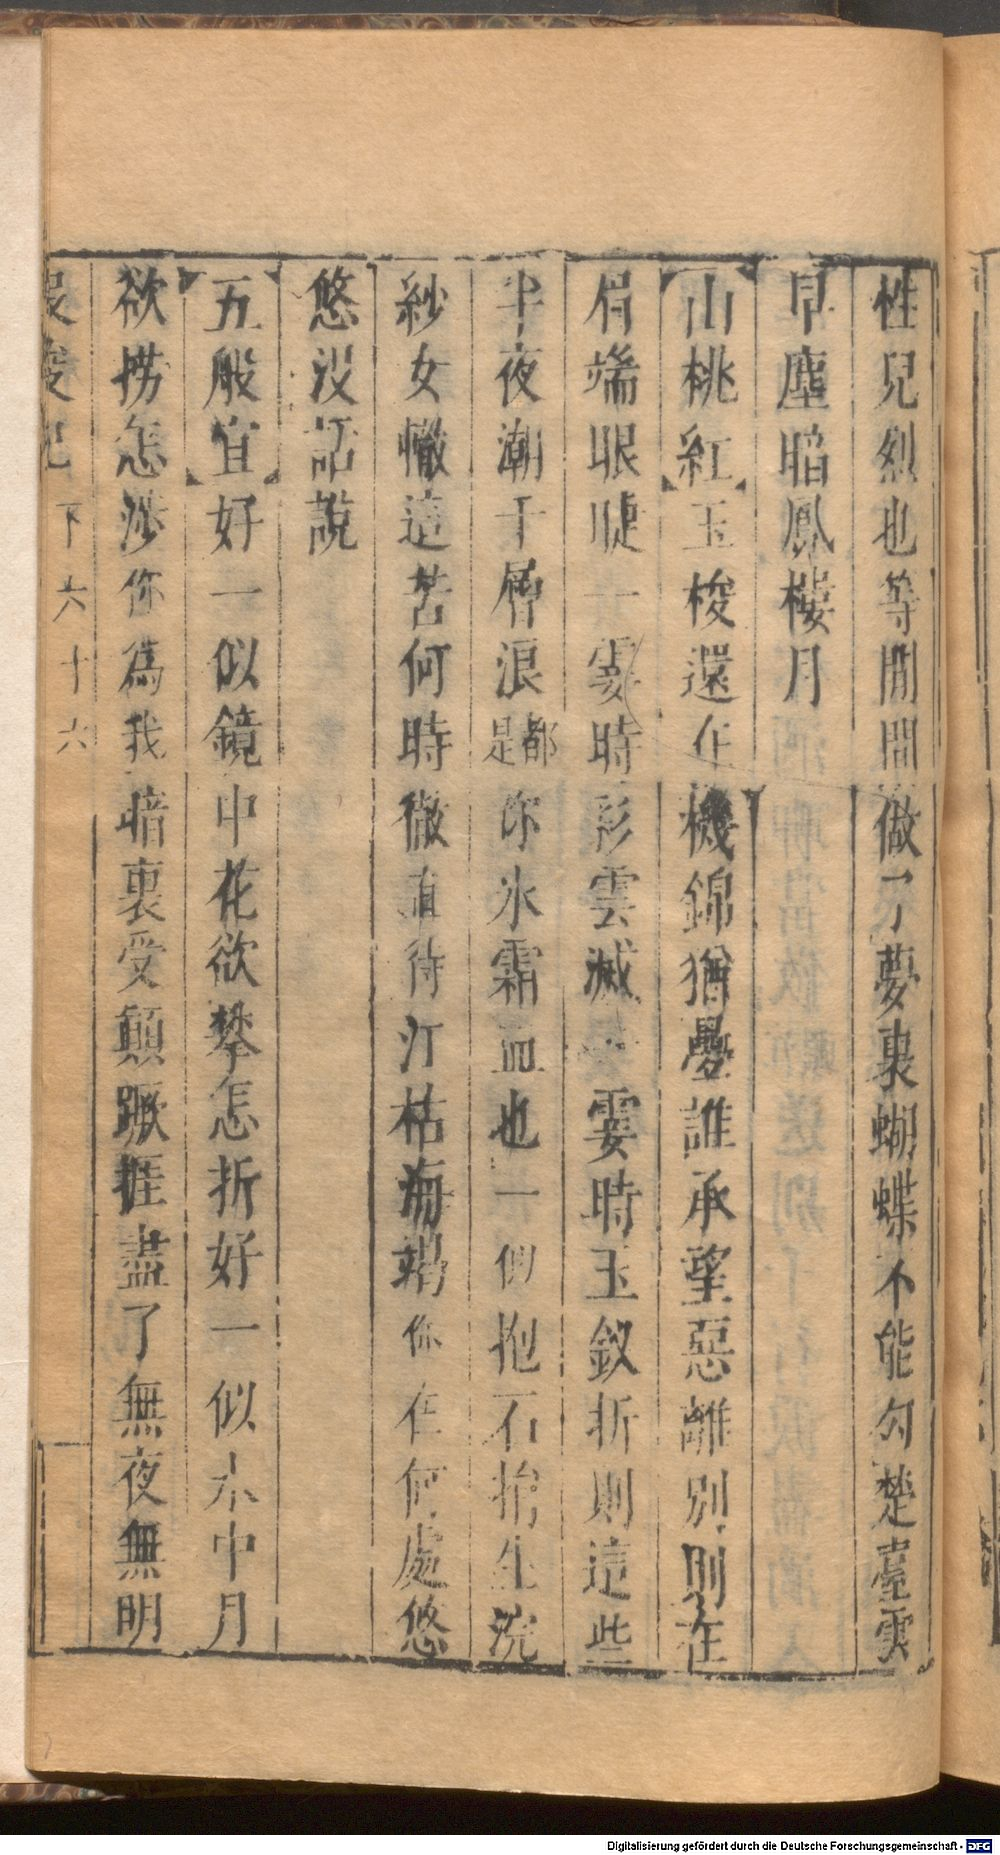 性兒烈也等閒間做了夢裏蝴蝶不能勾楚臺雲
早塵暗鳳樓月
山桃紅玉梭還在機錦猶疊誰承望惡離別則在
眉端眼睫一霎時彩雲滅一霎時玉釵折則這些
半夜潮千層浪都是你冰霜血也一似抱石拾生浣
紗女轍這苦何時徹直待汀枯海竭你在何處悠
悠沒話說
五般宜好一似鏡中花欲攀怎折好一似水中月
欲撈怎涉你為我暗裏受顛蹶捱盡了無夜無明
記 下 六十六
Digitalisierung gefördert durch die Deutsche Forschungsgemeinschaft - DFG